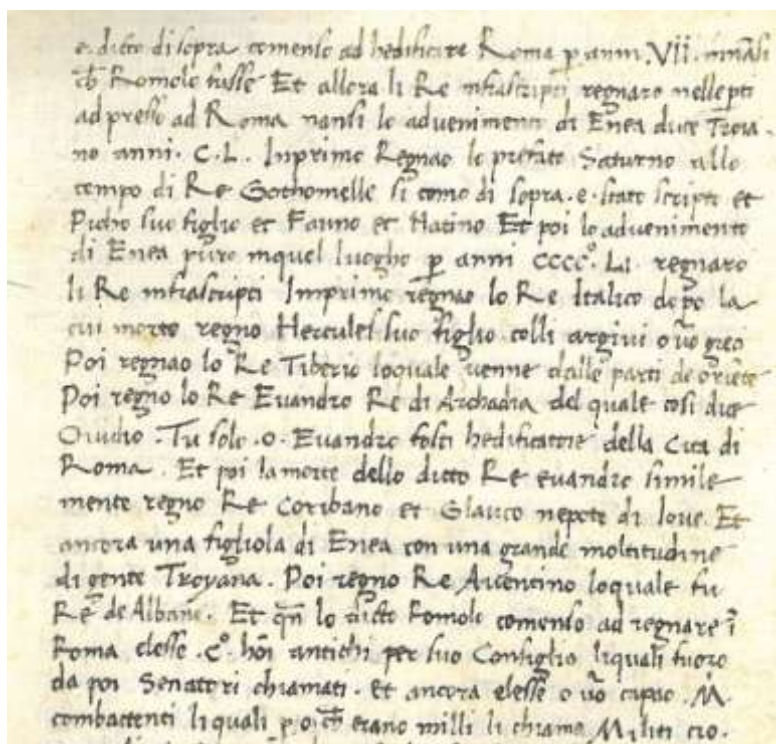 e. dicto di sopra comenso ad hedificare Roma p anni .VII. innãsi
cħ Romolo fusse Et allora li Re infrascripti regnaro nelle pti
ad presso ad Roma nansi lo advenimento di Enea duce Troia-
no anni. C.L. Inprimo Regnao lo prefato Saturno allo
tempo di Re Gothomelle si como di sopra .e. stato scripto et
Picho suo figlio et Fauno et Latino Et poi lo advenimento
di Enea puro inquel luogho p anni CCCC°. LI. regnaro
li Re infrascripti Imprimo regnao lo Re Italico depo la
cui morte regno Hercules suo figlio colli argivi o ũo greci
Poi regnao lo Re Tiberio loquale venne dalle parti de oriẽte
Poi regno lo Re Evandro Re di Archadia del quale cosi dice
Ovidio. Tu solo .o. Evandro fosti hedificatore della Cita di
Roma. Et poi la morte dello dicto Re evandro simile-
mente regno Re Coribano et Glauco nepote di Iove. Et
ancora una figliola di Enea con una grande moltitudine
di gente Troyana. Poi regno Re Aventino loquale fu
Re de Albane. Et qñ lo dicto Romolo comenso ad regnare ĩ
Roma elesse .C°. hõi antichi per suo Consiglio liquali fuoro
da poi Senatori chiamati. et ancora elesse o ũo capao .M.
combattenti liquali p o cħ erano milli li chiama Militi cio.